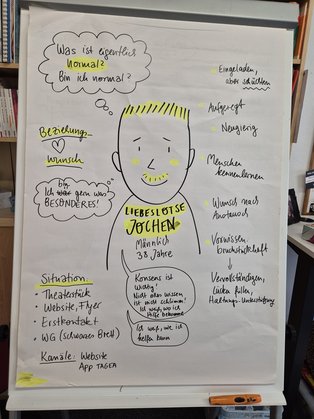 Was ist eigentlich
normal?
Bin ich normal?
Eingeladen,
aber schüchtern
Aufgeregt
Neugierig
Menschen
kennenlernen
Wunsch nach
Austausch
Vorwissen
bruchstückhaft
Vervollständigen,
Lücken füllen,
Haltungs-Unterstützung
Beziehungs-
wunsch
Ich war gern was
BESONDERES!
LIEBESLOTSE
JOCHEN
Männlich
38 Jahre
Konsens ist
wichtig!
Nicht alles wissen
ist nicht schlimm!
Ich weiß, wo ich
Hilfe bekomme
Ich weiß, wie ich
helfen kann
Situation:
• Theaterstück
• Website, Flyer
• Erstkontakt
• WG (schwarzes Brett)
Kanäle: Website
APP